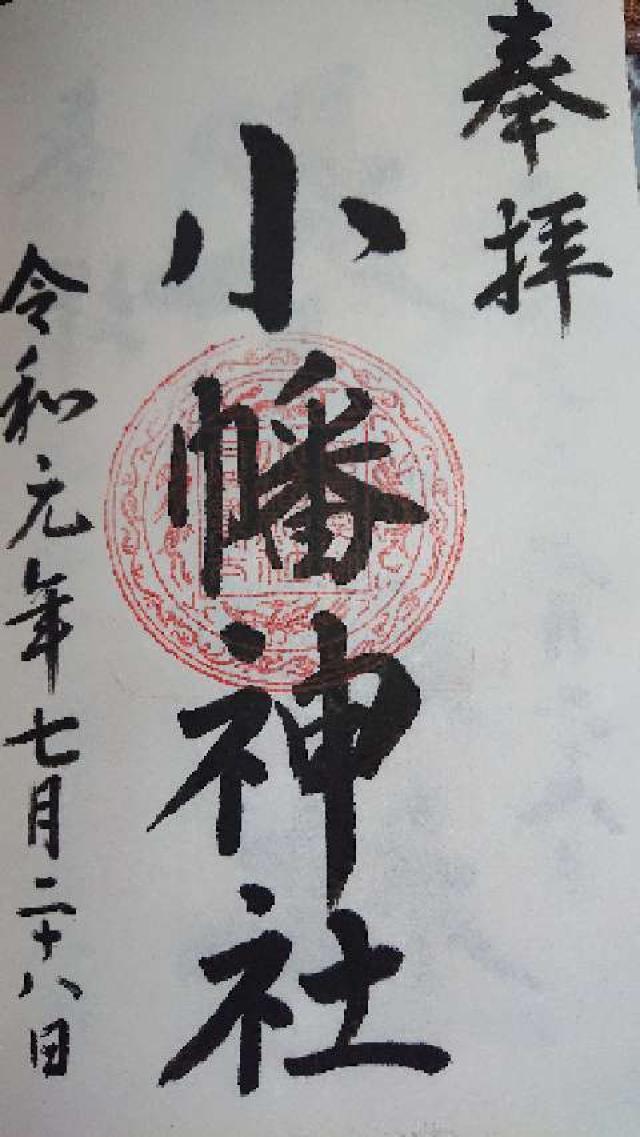 奉拝
小幡神社
令和元年七月二十八日